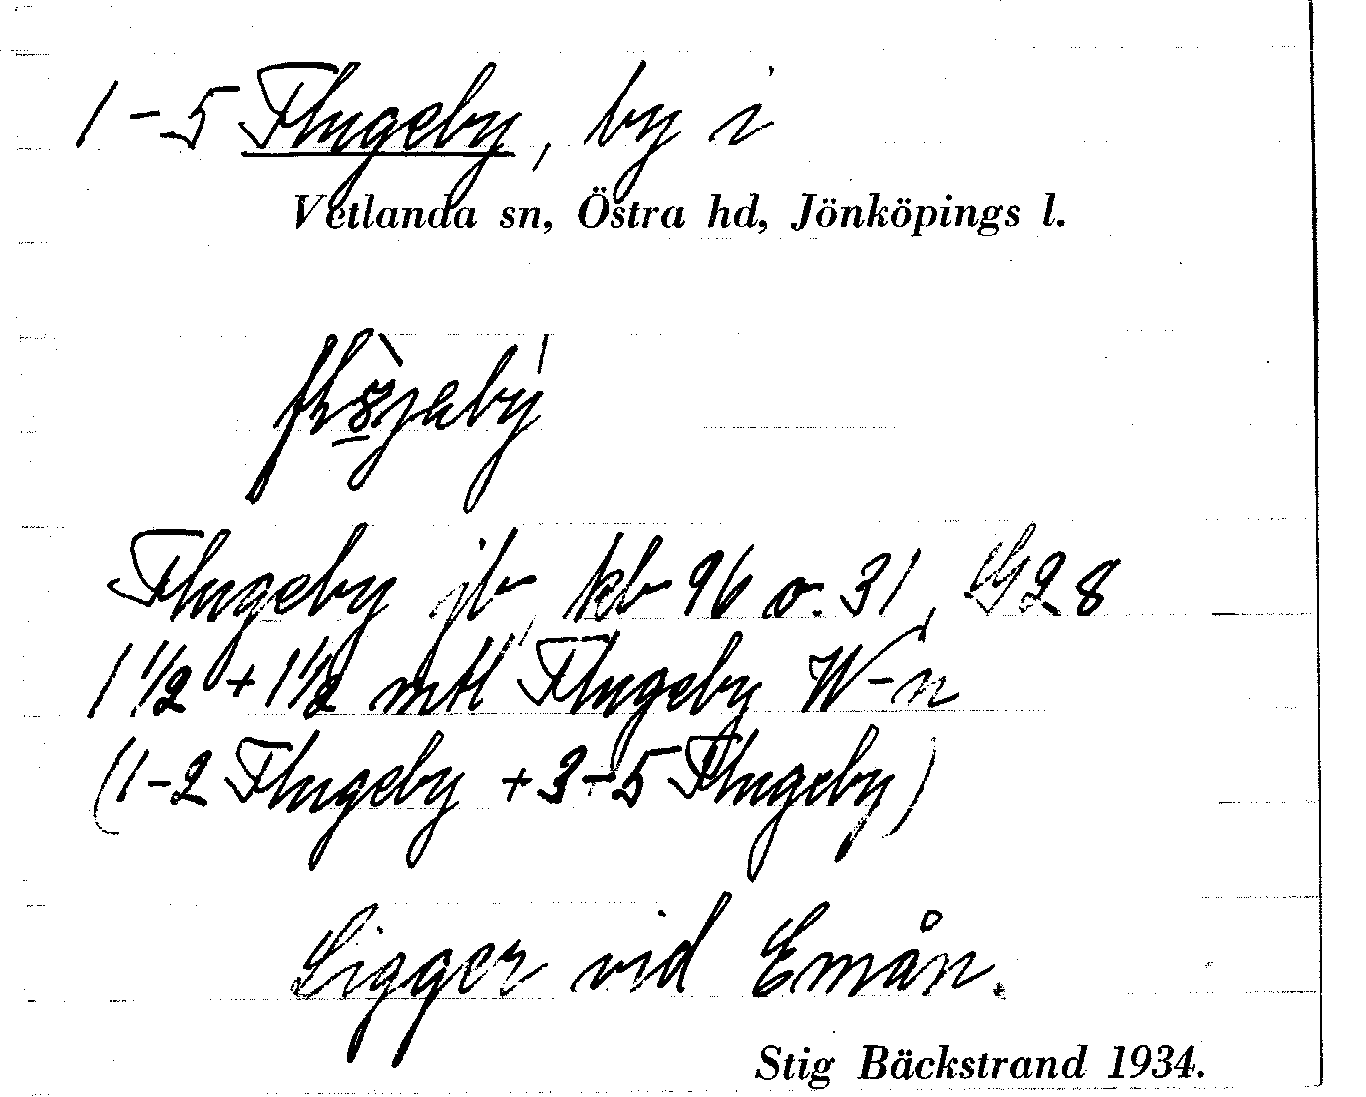 1-5 Flugeby, by i
Vetlanda sn, Östra hd, Jönköpings l.
Flugeby jb, kb 96 o. 31, G 28
1 1/2 + 1 1/2 mtl Flugeby W-n
(1-2 Flugeby + 3-5 Flugeby)
Ligger vid Emån.
Stig Bäckstrand 1934.